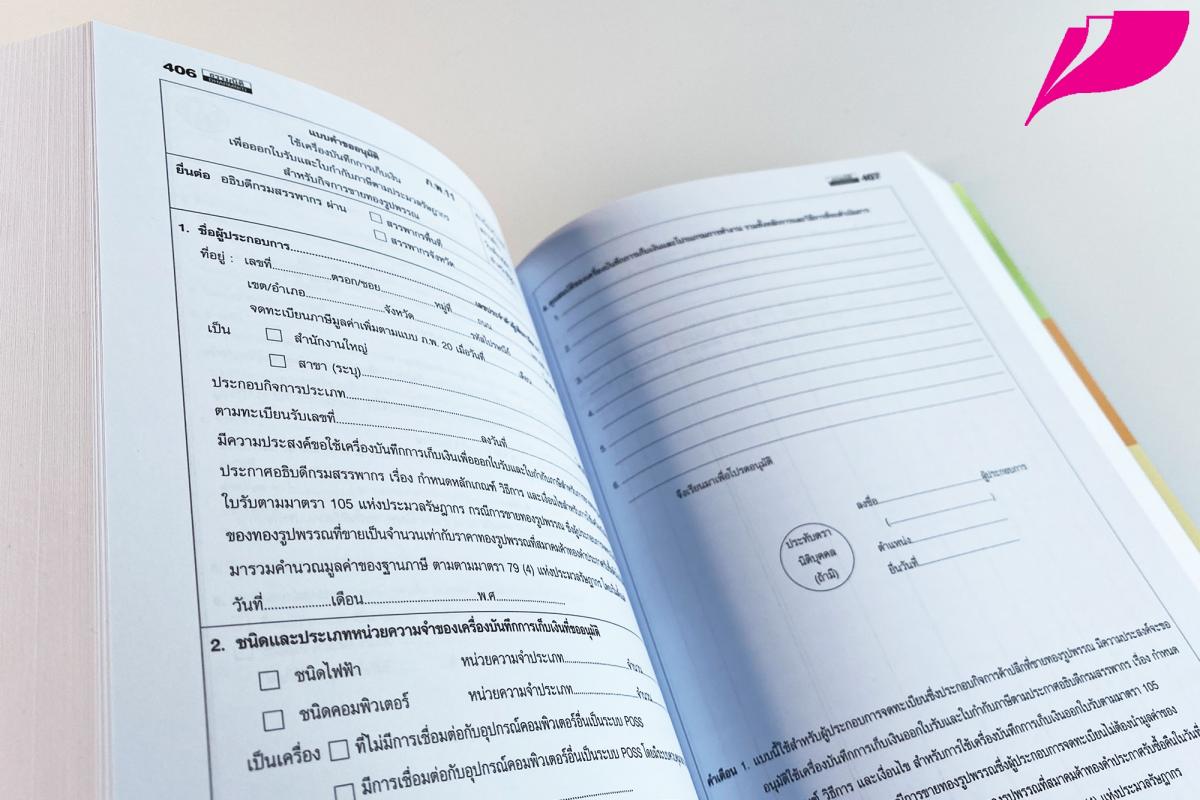 406 ธรรมนิติ
แบบคำขออนุมัติ
ใช้เครื่องบันทึกการเก็บเงิน
เพื่อออกใบรับและใบกำกับภาษีตามประมวลรัษฎากร
สำหรับกิจการขายทองรูปพรรณ
ภ.พ.11
ยื่นต่อ อธิบดีกรมสรรพากร ผ่าน
สรรพากรพื้นที่
สรรพากรจังหวัด
1. ชื่อผู้ประกอบการ
ที่อยู่ : เลขที่ ตรอก/ซอย หมู่ที่ ถนน
เขต/อำเภอ จังหวัด รหัสไปรษณีย์
จดทะเบียนภาษีมูลค่าเพิ่มตามแบบ ภ.พ. 20 เมื่อวันที่ เดือน
เป็น สำนักงานใหญ่
สาขา (ระบุ)
ประกอบกิจการประเภท
ตามทะเบียนรับเลขที่ ลงวันที่
มีความประสงค์ขอใช้เครื่องบันทึกการเก็บเงินเพื่อออกใบรับและใบกำกับภาษีสำหรับการ
ประกาศอธิบดีกรมสรรพากร เรื่อง กำหนดหลักเกณฑ์ วิธีการ และเงื่อนไขสำหรับการใช้เครื่อง
ใบรับตามมาตรา 105 แห่งประมวลรัษฎากร กรณีการขายทองรูปพรรณ ซึ่งผู้ประกอบการ
ของทองรูปพรรณที่ขายเป็นจำนวนเท่ากับราคาทองรูปพรรณที่สมาคมค้าทองคำประกาศรับซื้อคืน
มารวมคำนวณมูลค่าของฐานภาษี ตามตามมาตรา 79 (4) แห่งประมวลรัษฎากร
วันที่ เดือน พ.ศ
2. ชนิดและประเภทหน่วยความจำของเครื่องบันทึกการเก็บเงินที่ขออนุมัติ
ชนิดไฟฟ้า หน่วยความจำประเภท จำนวน
ชนิดคอมพิวเตอร์ หน่วยความจำประเภท จำนวน
เป็นเครื่อง ที่ไม่มีการเชื่อมต่อกับอุปกรณ์คอมพิวเตอร์อื่นเป็นระบบ POSS
มีการเชื่อมต่อกับอุปกรณ์คอมพิวเตอร์อื่นเป็นระบบ POSS
407
คุณสมบัติของเครื่องบันทึกการเก็บเงินและโปรแกรมการทำงาน รวมทั้งหลักการและวิธีการที่จะดำเนินการ
1.
2.
3.
4.
5.
6.
จึงเรียนมาเพื่อโปรดอนุมัติ
ลงชื่อ ผู้ประกอบการ
( )
ตำแหน่ง
ยื่นวันที่
ประทับตรา
นิติบุคคล
(ถ้ามี)
คำเตือน 1. แบบนี้ใช้สำหรับผู้ประกอบการจดทะเบียนซึ่งประกอบกิจการค้าปลีกที่ขายทองรูปพรรณ มีความประสงค์จะขอ
อนุมัติใช้เครื่องบันทึกการเก็บเงินในการออกใบรับและใบกำกับภาษีตามประกาศอธิบดีกรมสรรพากร เรื่อง กำหนด
วิธีการ และเงื่อนไข สำหรับการใช้เครื่องบันทึกการเก็บเงินออกใบรับตามมาตรา 105
การขายทองรูปพรรณซึ่งผู้ประกอบการจดทะเบียนไม่ต้องนำมูลค่าของ
ทองรูปพรรณที่สมาคมค้าทองคำประกาศรับซื้อคืนในวันที่
79 (4) แห่งประมวลรัษฎากร